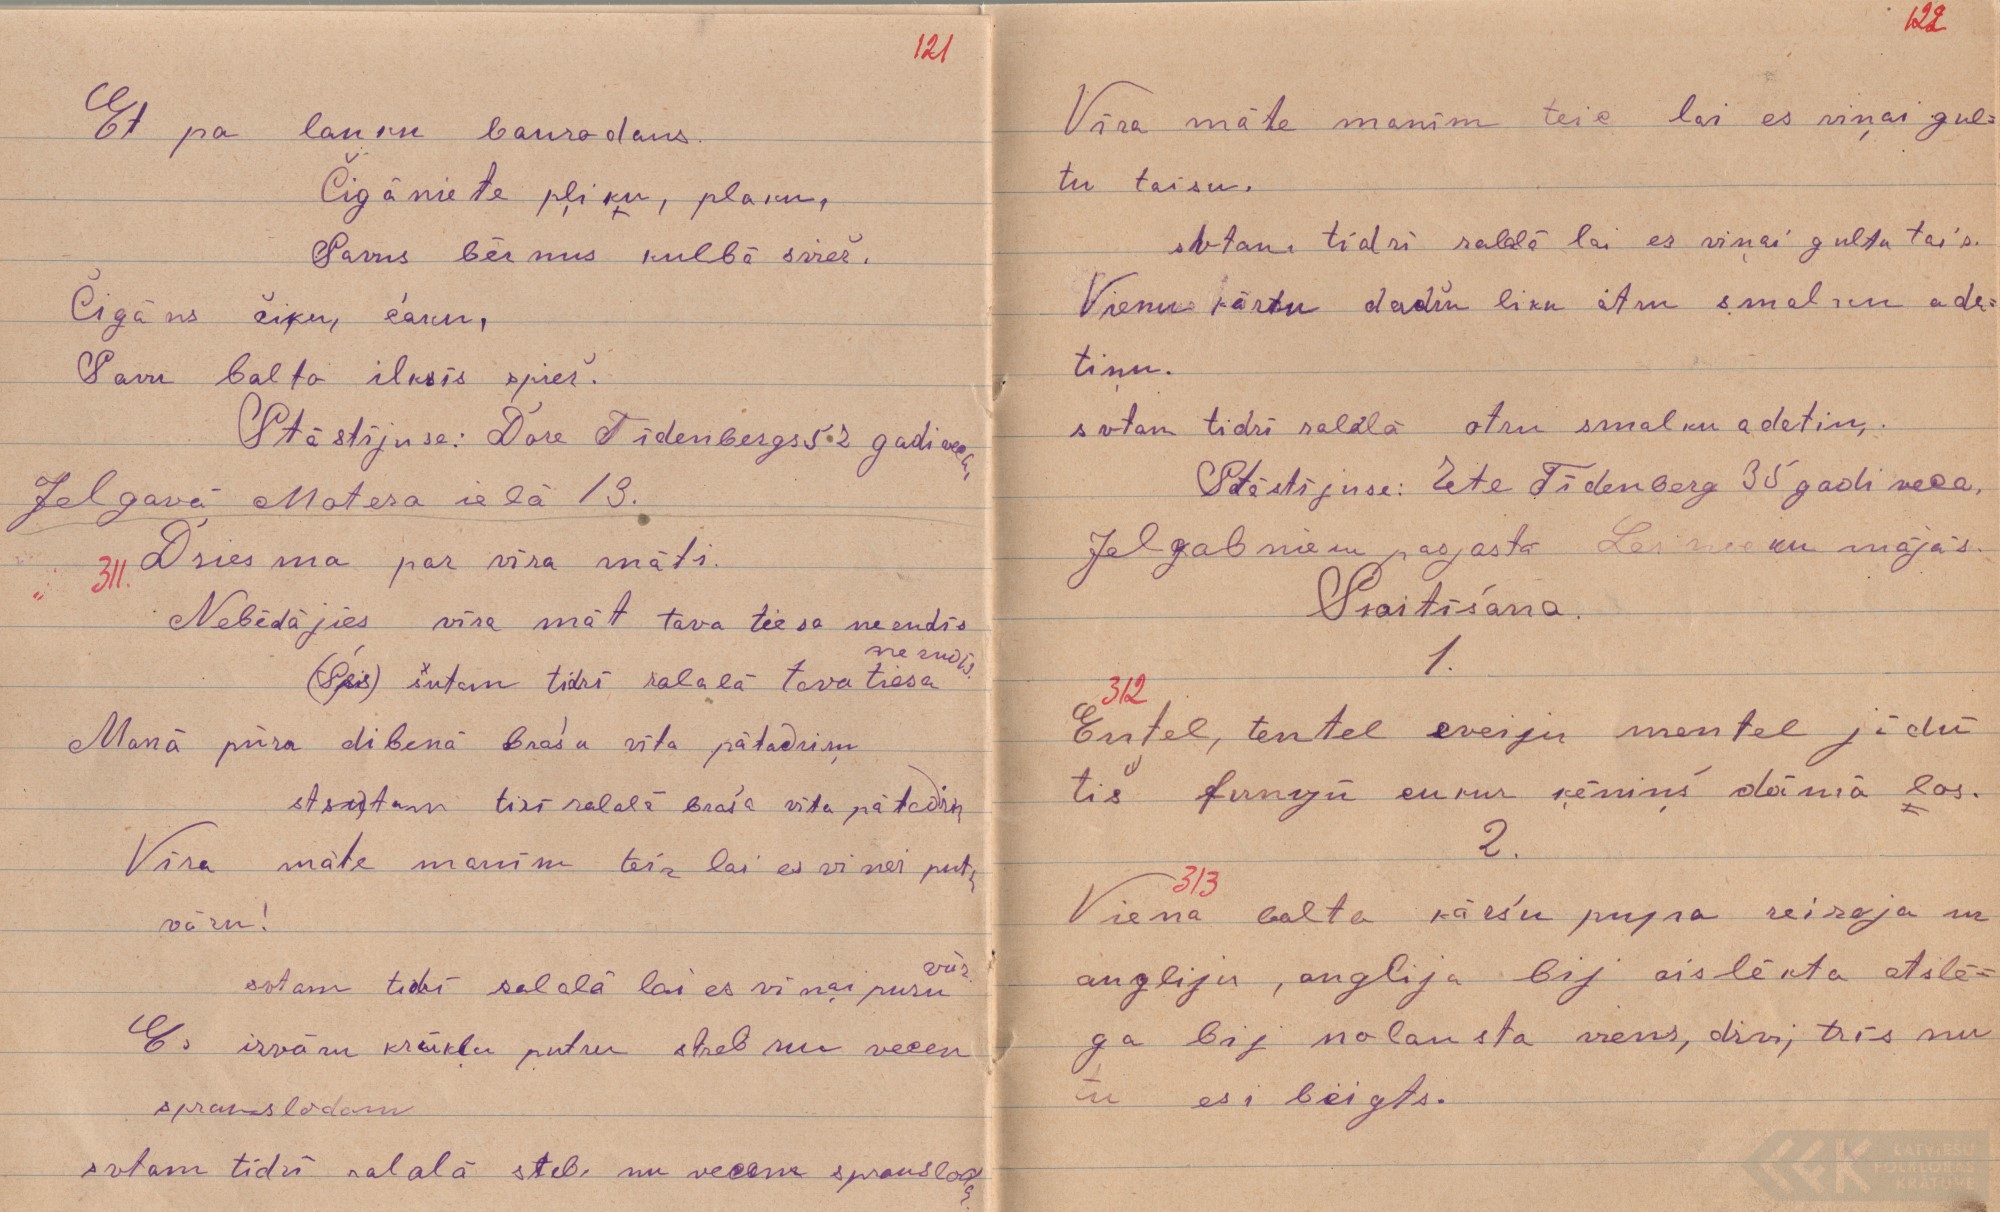 121
Et pa lauku baurodams.
Čigāniete pļiķu, plaku,
Savus bērnus kulbā sviež.
Čigāns čiku, čaku,
Savu balto ilksīs spiež.
Stāstījuse: Dore Tīdenbergs 52 gadi veca,
Jelgavā Matera ielā 19.
311. Dziesma par vīra māti.
Nebēdājies vīra māt tava tiesa nezudīs
nezudīs.
šutam tidrī ralalā tava tiesa
Manā pūra dibenā braša vīta pātadziņu
tirī ralalā braša vīta pātadziņ
Vīra māte manīm teic lai es viņei putr
vāru!
sutam tidrī ralalā lai es viņai putru
vār
Es izvāru krūkļu putru streb nu vecen
sprauslodam
sutam tidrī ralalā streb nu vecene sprauslod
122
Vīra māte manīm teic lai es viņai gul=
tu taisu.
sutam tidrī ralalā lai es viņai gultu tais.
Vienu kārtu dadžu liku otru smalku ada=
tiņu.
sutam tidrī ralalā otru smalku adatiņ.
Stāstījuse: Zete Tīdenberg 35 gadi veca,
Jelgabnieku pagastā mājās.
Skaitīšana.
1.
312
Entel, tentel cveiju mentel jūdū
tiš funyū cukur ķēniņš dāmā las.
2.
313
Viena balta kāršu pupa reizoja uz
angliju, anglija bij aislēkta atslē=
ga bij nolausta viens, divi, trīs nu
tu esi beigts.
LATVIEŠU
FOLKLORAS
KRĀTUVE